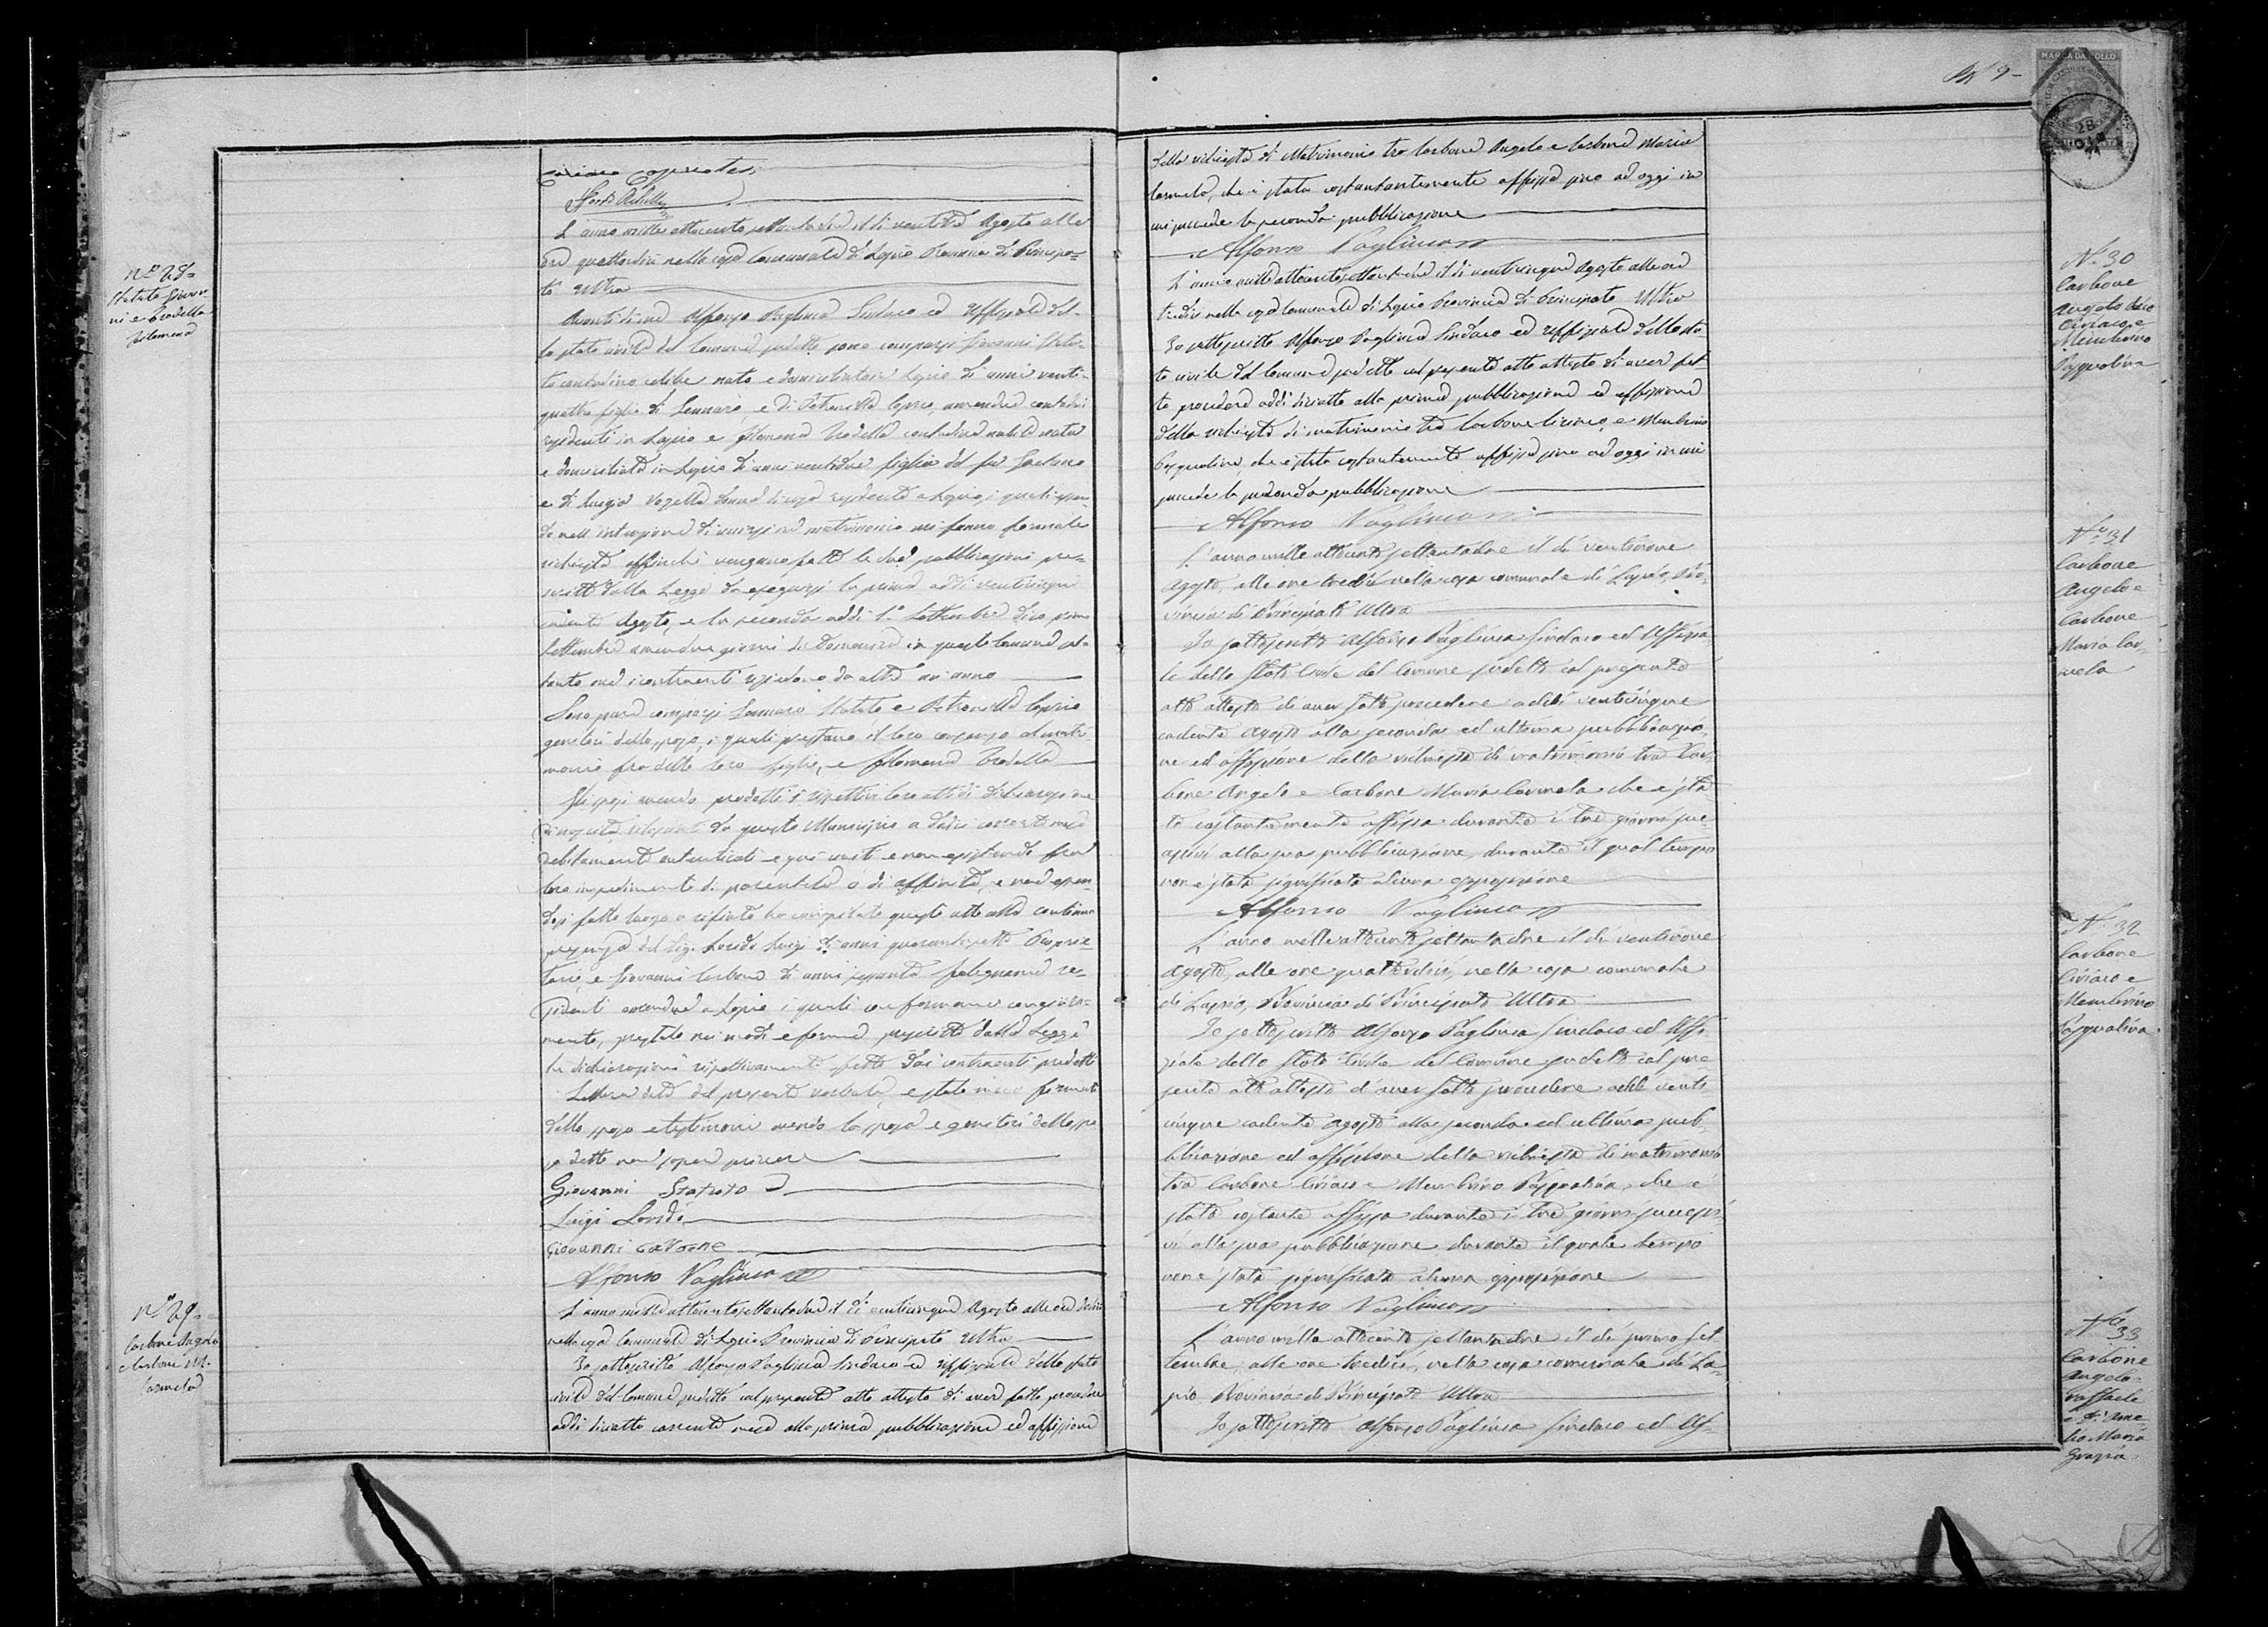 N° 28
Statuto Giovan
ni e Tradella
Filomena
L'anno mille ottocento settantadue il di ventitre Agosto alle
ore quattordici nella casa Comunale di Lapio Provincia di Principa=
to Ultra
Avanti di me Alfonso Vagliuca Sindaco ed Uffiziale del=
lo stato civile del Comune sudetto sono comparsi Giovanni Statu=
to contadino celibe nato e domiciliato in Lapio di anni venti=
quattro figlio di Gennaro e di Petronilla amendue contadini
residenti in Lapio e Filomena Tradella contadina nubile nata
e domiciliata in Lapio di anni ventidue figlia del fu Gaetano
e di Luigia donna di casa residente a Lapio, i quali
do nell'intenzione di unirsi in matrimonio mi fanno formale
richiesta affinchè vengano fatte le due pubblicazioni pre=
scritte dalla Legge da eseguirsi la prima addì venticinque
Agosto, e la seconda addì 1° Settembre dico primo
Settembre amendue giorni di Domenica in questo Comune sol=
tanto ove i contraenti risiedono da oltre un anno
Sono pure comparsi Gennaro Statuto e Petronilla
genitori dello sposo, i quali prestano il loro consenso al matri
monio fra detto loro figlio, e Filomena Tradella
Gli sposi avendo prodotti i rispettivi loro atti di
di nascita rilasciati da questo Municipio a dodici corrente mese
debitamente autenticati e qui uniti e non esistendo fra
loro impedimento di parentela o di affinità, e non essen=
dosi fatto luogo a rifiuto ho compilato questo atto alla continua
presenza del Sig. Luigi di anni quarantasette Proprie=
tario, e Giovanni Carbone di anni sessanta falegname re=
sidenti amendue a Lapio i quali confermano
mente, prestate nei modi e forme prescritti dalla Legge
le dichiarazioni rispettivamente fatte dai contraenti predetti
Lettura data del presente verbale, è stato meco firmato
dallo sposo e testimoni avendo la sposa e genitori dello spo
so detto non sapere scrivere
Giovanni Statuto
Luigi
Giovanni carbone
Alfonso Vagliuca
N° 29
Carbone Angelo
e Carbone M.
Carmela
L'anno mille ottocento settantadue il di venticinque Agosto alle ore dodici
nella casa Comunale di Lapio Provincia di Principato Ultra
Io sottoscritto Alfonso Vagliuca Sindaco ed Uffiziale dello stato
civile del Comune sudetto col presente atto attesto di aver fatto procedere
addì diciotto corrente mese alla prima pubblicazione ed affissione
della richiesta di Matrimonio tra Carbone Angelo e Carbone Maria
Carmela, che è stata costantemente affissa sino ad oggi in
cui succede la seconda pubblicazione
Alfonso Vagliuca
N. 30
Carbone
Angelo detto
Ciriaco, e
Membrino
Pasqualina
L'anno mille ottocento settantadue il di venticinque Agosto alle ore
tredici nella casa Comunale di Lapio Provincia di Principato Ultra
Io sottoscritto Alfonso Vagliuca Sindaco ed Uffiziale dello sta=
to civile del Comune sudetto col presente atto attesto di aver fat=
to procedere addì diciotto alla prima pubblicazione ed affissione
della richiesta di matrimonio tra Carbone Ciriaco, e Membrino
Pasqualina, che è stata costantemente affissa sino ad oggi in cui
succede la seconda pubblicazione
Alfonso Vagliuca
N° 31
Carbone
Angelo e
Carbone
Maria Car=
mela
L'anno mille ottocento settantadue il dì ventinove
Agosto, alle ore tredici nella casa comunale di Lapio, Pro=
vincia di Principato Ultra
Io sottoscritto Alfonso Vagliuca Sindaco ed Uffizia=
le dello Stato Civile del Comune sudetto col presente
atto attesto di aver fatto procedere addì venticinque
cadente Agosto alla seconda ed ultima pubblicazio=
ne ed affissione della richiesta di matrimonio tra Car=
bone Angelo e Carbone Maria Carmela che è sta=
ta costantemente affissa durante i tre giorni suc=
cessivi alla sua pubblicazione, durante il qual tempo
non è stata significata alcuna opposizione
Alfonso Vagliuca
N° 32
Carbone
Ciriaco e
Membrino
Pasqualina
L'anno mille ottocento settantadue il dì ventinove
Agosto, alle ore quattordici, nella casa comunale
di Lapio, Provincia di Principato Ultra
Io sottoscritto Alfonso Vagliuca Sindaco ed Uffi=
ziale dello Stato Civile del Comune sudetto col pre=
sente atto attesto d'aver fatto procedere addì venti
cinque cadente Agosto alla seconda ed ultima pub=
blicazione ed affissione della richiesta di matrimonio
tra Carbone Ciriaco e Membrino Pasqualina, che è
stata costante affissa durante i tre giorni successi=
vi alla sua pubblicazione durante il quale tempo
non è stata significata alcuna opposizione
Alfonso Vagliuca
N° 33
Carbone
Angelo
Raffaele
Maria
Grazia
L'anno mille ottocento settantadue il dì primo Set
tembre, alle ore tredici, nella casa comunale di La=
pio Provincia di Principato Ultra
Io sottoscritto Alfonso Vagliuca Sindaco ed Uf=
MARCA DA BOLLO